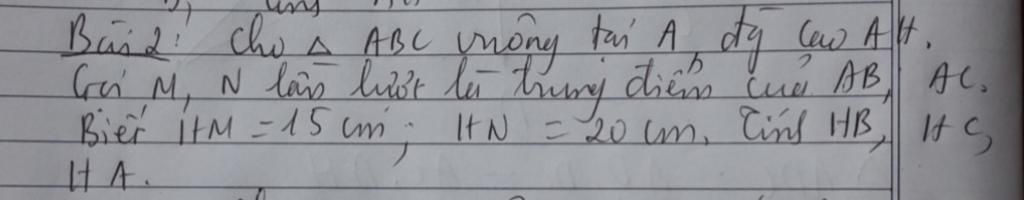 Bài 2: Cho △ ABC vuông tại A, đg cao AH.
Gọi M, N lần lượt là trung điểm của AB, AC.
Biết HM = 15 cm; HN = 20 cm. Tính HB, HC,
HA.